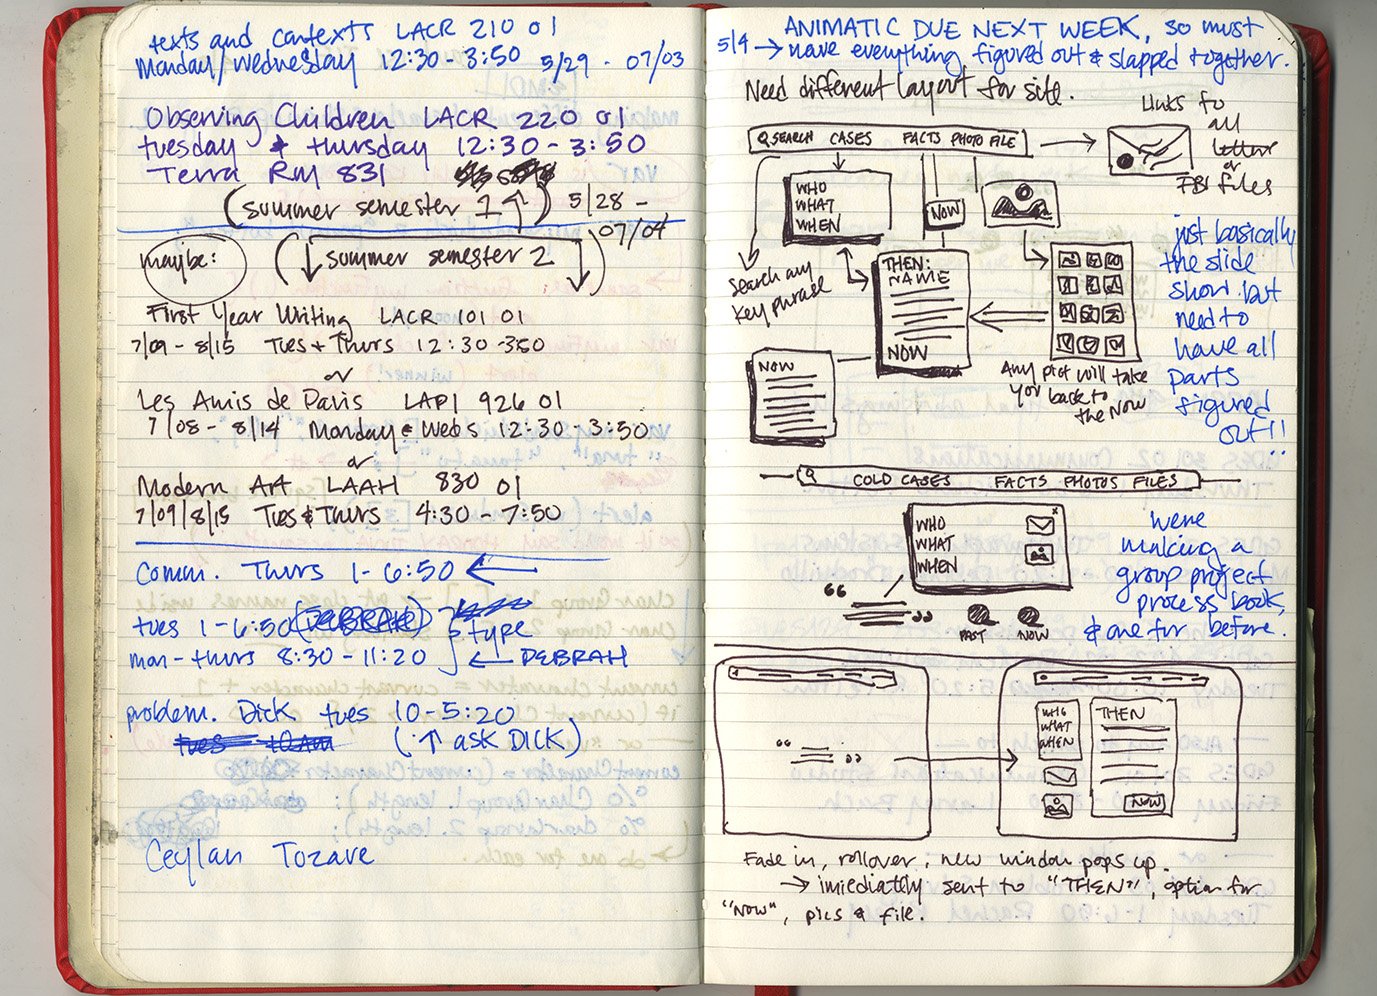 texts and contexts LACR 210 01
Monday/Wednesday 12:30 - 3:50 5/29 - 07/03
Observing Children LACR 220 01
tuesday & thursday 12:30 - 3:50
Terra Rm 831
(summer semester 1 ↑) 5/28 - 07/04
maybe:
(↓ summer semester 2 ↓)
First Year Writing LACR 101 01
7/09 - 8/15 Tues + Thurs 12:30 - 350
or
Les Amis de Paris LAPI 926 01
7/08 - 8/14 Monday & Weds 12:30 3:50
or
Modern Art LAAH 830 01
7/09/8/15 Tues & Thurs 4:30 - 7:50
Comm. Thurs 1 - 6:50 ←
tues 1 - 6:50 (DEBRAH)
type
mon - thurs 8:30 - 11:20 ← DEBRAH
problem. Dick tues 10 - 5:20
tues 10am (↑ ask DICK)
Ceylan Tozave
ANIMATIC DUE NEXT WEEK, so must
5/4 → have everything figured out & slapped together.
Need different layout for site.
SEARCH CASES FACTS PHOTO FILE
Links to
all
letter
or
FBI files
WHO
WHAT
WHEN
NOW
search any
key phrase
THEN:
NAME
NOW
NOW
Any pict will take
you back to
the Now
just basically
the slide
show but
need to
have all
parts
figured
out!!
COLD CASES FACTS PHOTOS FILES
WHO
WHAT
WHEN
x
“ ”
PAST NOW
were
making a
group project
process book,
& one for before.
“ ”
WHO
WHAT
WHEN
THEN
NOW
Fade in, rollover, new window pops up.
→ imiediatly sent to "THEN", option for
"NOW", pics & file.